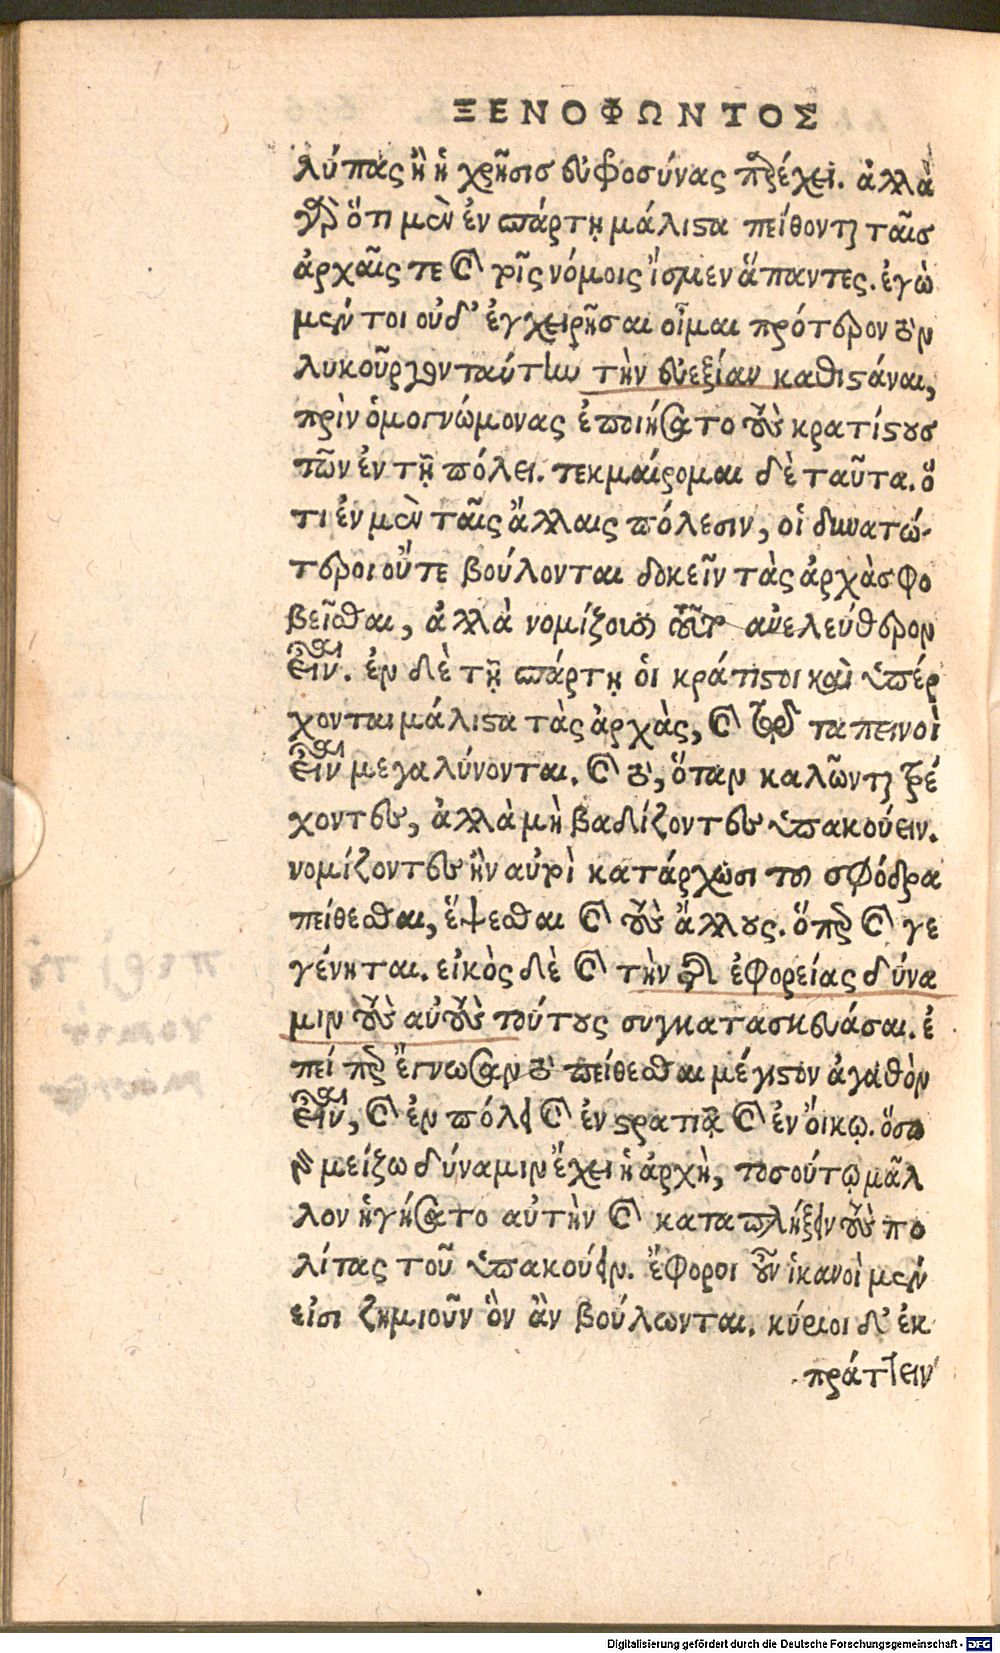 ΞΕΝΟΦΩΝΤΟΣ
λύπας ἢ ἡ χρῆσις εὐφροσύνας παρέχει. ἀλλὰ
γὰρ ὅτι μὲν ἐν σπάρτῃ μάλιστα πείθονται ταῖς
ἀρχαῖς τε καὶ τοῖς νόμοις ἴσμεν ἅπαντες. ἐγὼ
μέν τοι οὐδ' ἐγχειρῆσαι οἶμαι πρότερον τὸν
λυκοῦργον ταύτην τὴν εὐεξίαν καθιστάναι,
πρὶν ὁμογνώμονας ἐποιήσατο τοὺς κρατίστους
τῶν ἐν τῇ πόλει. τεκμαίρομαι δὲ ταῦτα. ὅ
τι ἐν μὲν ταῖς ἄλλαις πόλεσιν, οἱ δυνατώ-
τεροι οὔτε βούλονται δοκεῖν τὰς ἀρχὰς φο
βεῖσθαι, ἀλλὰ νομίζουσι τοῦτο ἀνελεύθερον
εἶναι. ἐν δὲ τῇ σπάρτῃ οἱ κράτιστοι καὶ ὑπέρ
χονται μάλιστα τὰς ἀρχὰς, καὶ τῷ ταπεινοὶ
εἶναι μεγαλύνονται. καὶ τῷ, ὅταν καλῶνται τρέ
χοντες, ἀλλὰ μὴ βαδίζοντες ὑπακούειν.
νομίζοντες ἢν αὐτοὶ κατάρχωσι τοῦ σφόδρα
πείθεσθαι, ἕψεσθαι καὶ τοὺς ἄλλους. ὅπερ καὶ γε
γένηται. εἰκὸς δὲ καὶ τὴν τῆς ἐφορείας δύνα
μιν τοὺς αὐτοὺς τούτους συγκατασκευάσαι. ἐ
πεί περ ἔγνωσαν τὸ πείθεσθαι μέγιστον ἀγαθὸν
εἶναι, καὶ ἐν πόλει καὶ ἐν στρατιᾷ καὶ ἐν οἴκῳ. ὅσῳ
γὰρ μείζω δύναμιν ἔχει ἡ ἀρχὴ, τοσούτῳ μᾶλ
λον ἡγήσατο αὐτὴν καὶ καταπλήξειν τοὺς πο
λίτας τοῦ ὑπακούειν. ἔφοροι οὖν ἱκανοὶ μέν
εἰσι ζημιοῦν ὃν ἂν βούλωνται. κύριοι δ' ἐκ
πράττειν
Digitalisierung gefördert durch die Deutsche Forschungsgemeinschaft - DFG